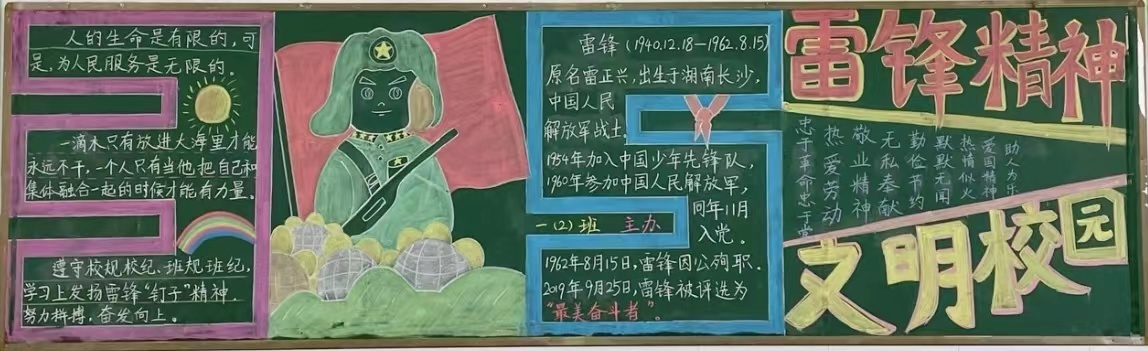 人的生命是有限的,可
是,为人民服务是无限的。
一滴木只有放进大海里才能
永远不干,一个人只有当他把自己和
集体融合一起的时候才能有力量。
遵守校规校纪、班规班纪,
学习上发扬雷锋“钉子”精神,
努力拼搏,奋发向上。
雷锋(1940.12.18-1962.8.15)
原名雷正兴,出生于湖南长沙,
中国人民
解放军战士.
1954年加入中国少年先锋队,
1960年参加中国人民解放军,
同年11月
入党。
一(2)班 主办
1962年8月15日,雷锋因公殉职.
2019年9月25日,雷锋被评选为
“最美奋斗者”。
雷锋精神
忠于革命忠于党
热爱劳动
敬业精神
无私奉献
勤俭节约
默默无闻
热情似火
爱国精神
助人为乐
文明校园